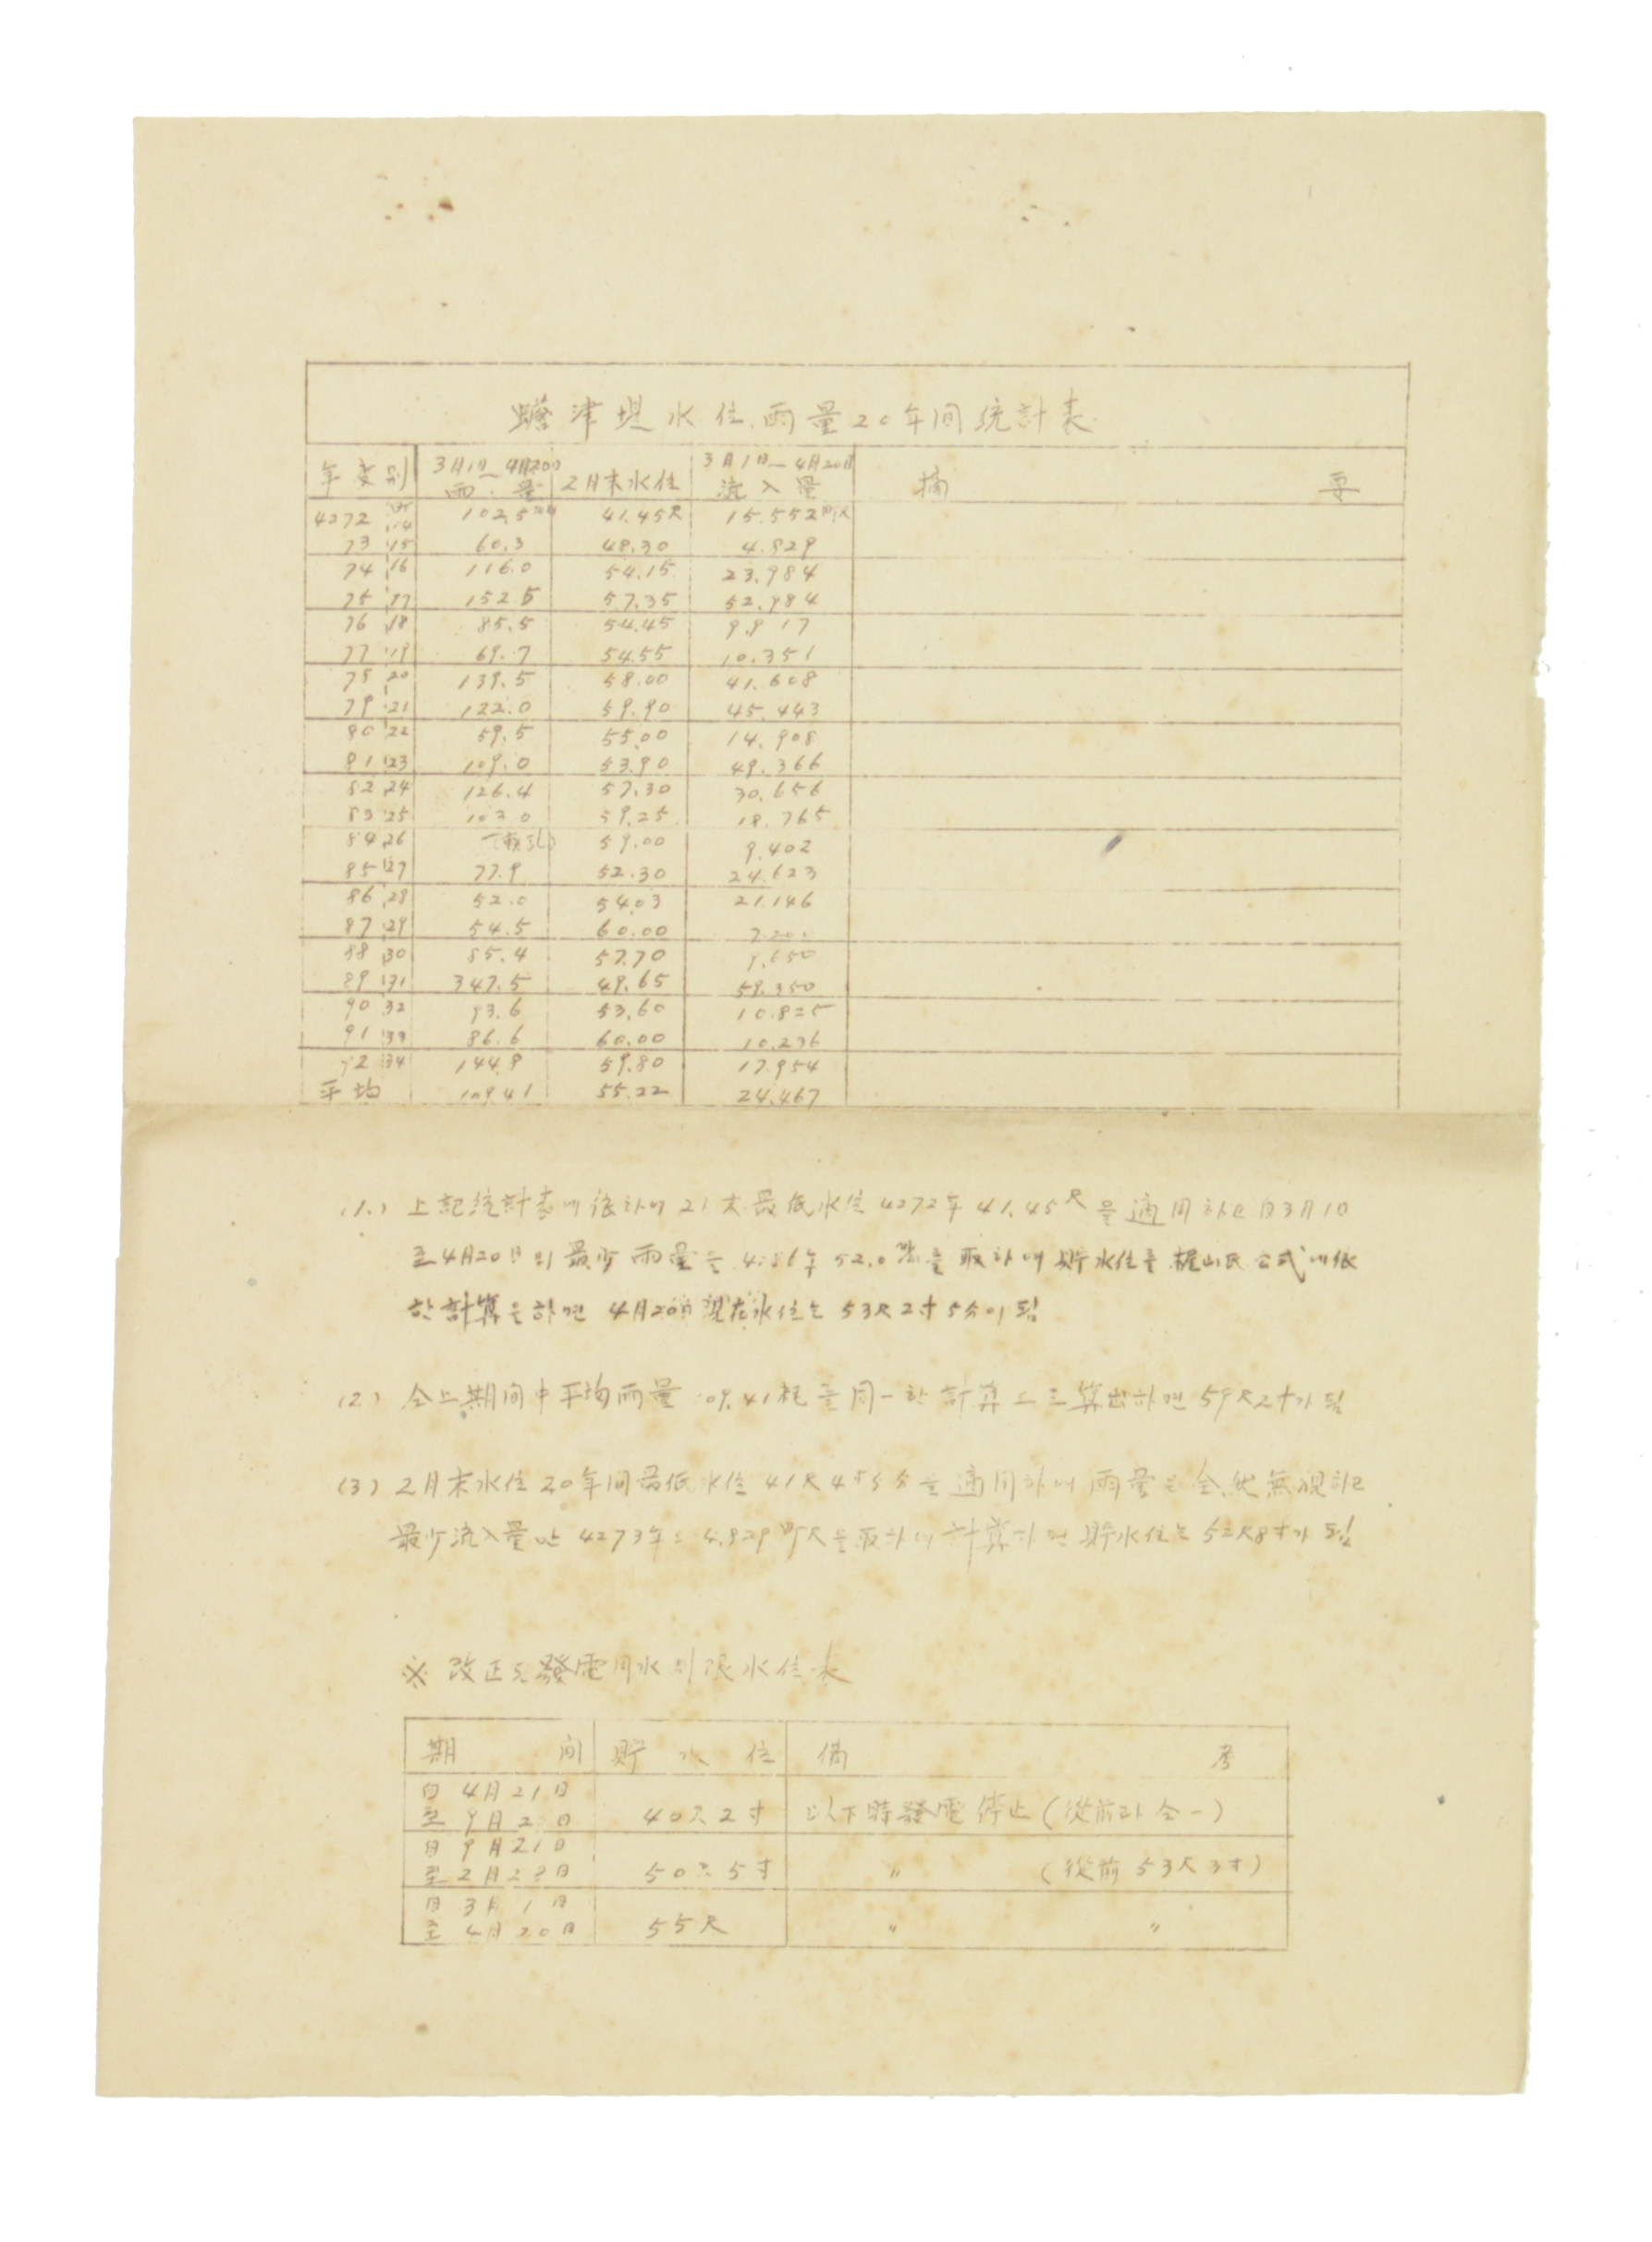 蟾津堤水位.雨量20年间統計表
年度別 3月1日~4月20日雨量 2月末水位 3月1日~4月20日流入量 摘要
4272 14 102.5 41.45尺 15.552町尺
73 15 60.3 48.30 4.829
74 16 116.0 54.15 23.984
75 17 152.5 57.35 52.984
76 18 85.5 54.45 9.917
77 19 69.7 54.55 10.351
78 20 139.5 58.00 41.608
79 21 122.0 59.90 45.443
80 22 59.5 55.00 14.908
81 23 109.0 53.90 49.366
82 24 126.4 57.30 30.656
83 25 103.0 59.25 18.765
84 26 59.00 9.402
85 27 77.9 52.30 24.623
86 28 52.0 54.03 21.146
87 29 54.5 60.00
88 30 85.4 57.70 9.650
89 31 347.5 49.65 59.350
90 32 93.6 53.60 10.825
91 33 86.6 60.00 10.236
92 34 144.8 59.80 17.954
平均 109.41 55.22 24.467
(1.) 上記統計表에 依하여 2月末最低水位 4272年 41.45尺을 適用하고 自3月1日
至4月20日의 最少雨量은 4286年 52.0粍을 取하여 貯水位를 梶山氏公式에依
한計算을하면 4月20日現在水位는 53尺2寸5分이됨
(2) 仝上期间中平均雨量 109.41粍를 同一한計算으로算出하면 59尺2寸가됨
(3) 2月末水位20年间最低水位 41尺4寸5分을適用하여 雨量은全然無視하고
最少流入量만 4273年의 4.829町尺을取하여 計算하면 貯水位는 52尺8寸가됨
※ 改正된發電用水制限水位表
期间 貯水位 備考
自 4月21日
至 9月20日 40尺2寸 以下時發電停止(從前과仝一)
自 9月21日
至 2月28日 50尺5寸 〃 (從前53尺3寸)
自 3月1日
至 4月20日 55尺 〃 〃